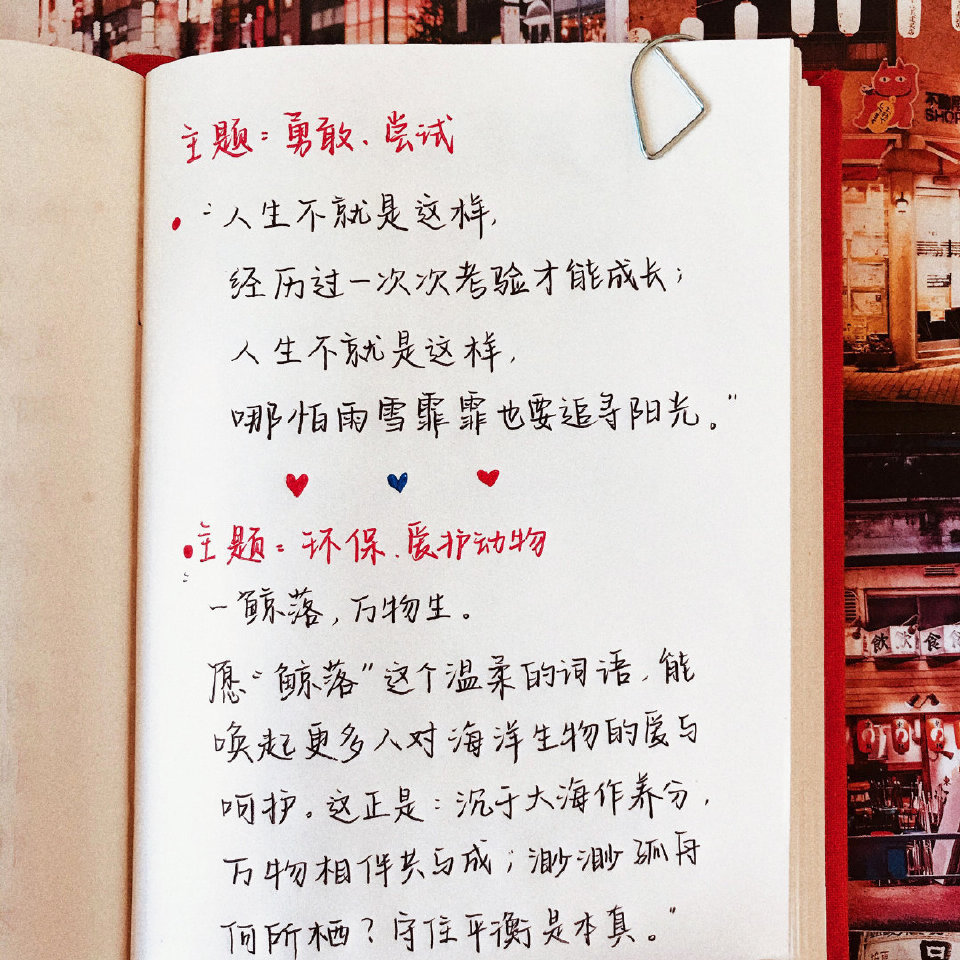 主题:勇敢、尝试
"人生不就是这样,
经历过一次次考验才能成长;
人生不就是这样,
哪怕雨雪霏霏也要追寻阳光。"
主题:环保、爱护动物
一鲸落,万物生。
愿"鲸落"这个温柔的词语,能
唤起更多人对海洋生物的爱与
呵护。这正是:沉于大海作养分,
万物相伴共与成;渺渺孤舟
何所栖?守住平衡是本真。"
SHOP
飲
飲
食
食